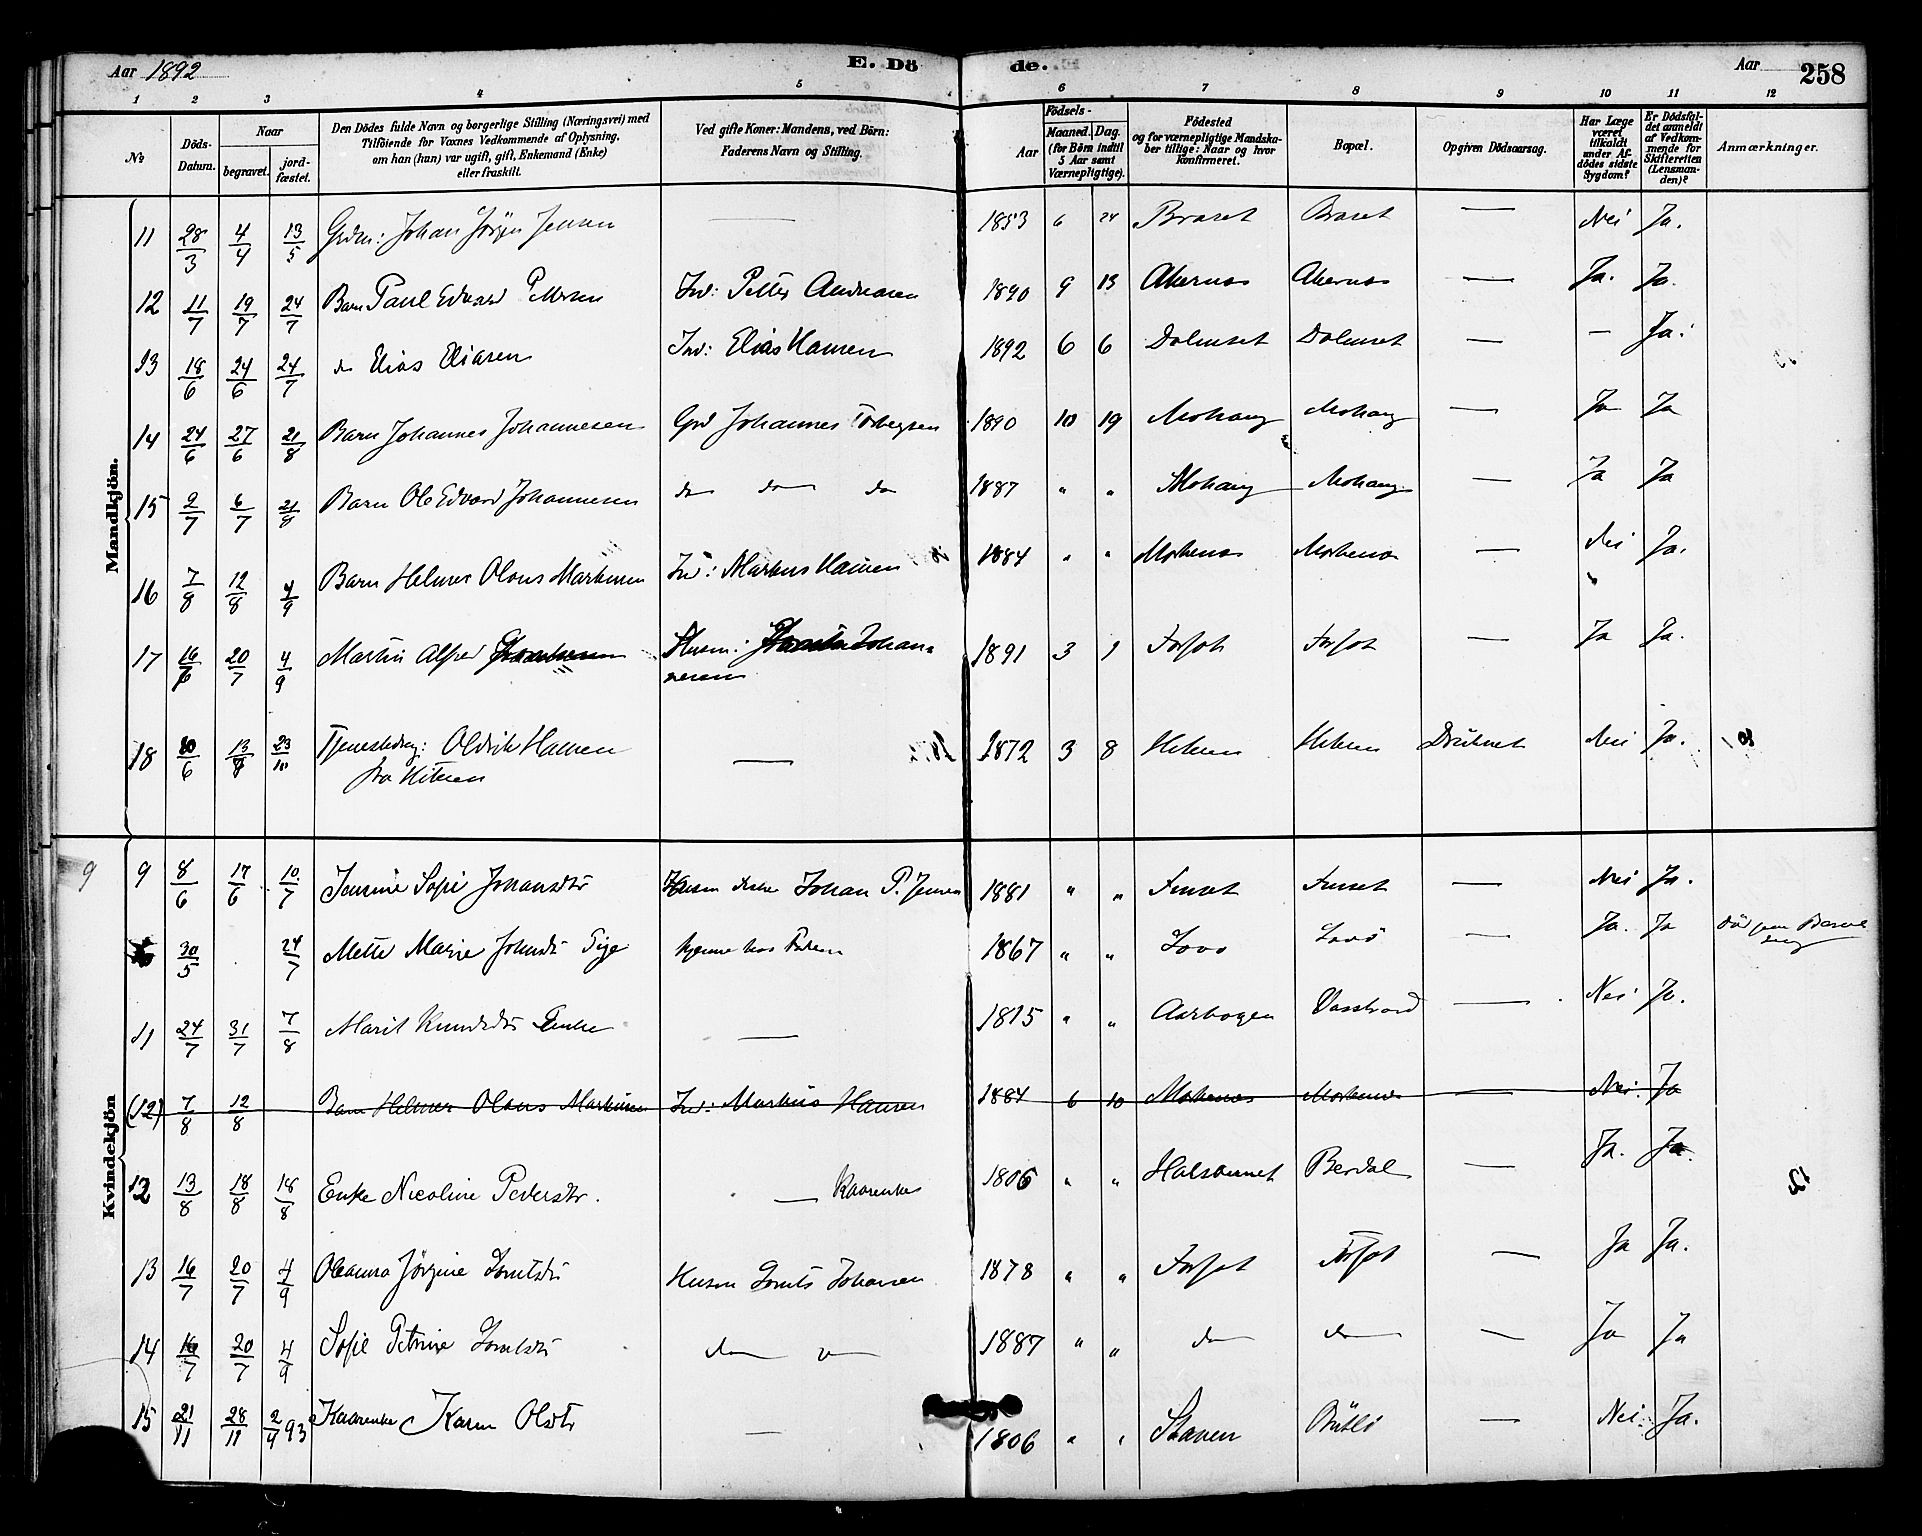 Aar 1892 E. Dö de. Aar 258
1 2 3 4 5 6 7 8 9 10 11 12
No
Döds-Datum.
Naar
begravet.
jord-fæstet.
Den Dödes fulde Navn og borgerlige Stilling (Næringsvei) med
Tilföiende for Voxnes Vedkommende af Oplysning,
om han (hun) var ugift, gift, Enkemand (Enke)
eller fraskilt.
Ved gifte Koner: Mandens, ved Börn:
Faderens Navn og Stilling.
Födsels-
Aar
Maaned. Dag.
(for Börn indtil
5 Aar samt
Værnepligtige).
Födested
og for værnepligtige Mandska-
ber tillige: Naar og hvor
konfirmeret.
Bopæl.
Opgiven Dödsaarsag.
Har Læge
været
tilkaldt
under Af-
dödes sidste
Sygdom?
Er Dödsfal-
det anmeldt
af Vedkom-
mende for
Skifteretten
(Lensman-
den)?
Anmærkninger.
Mandkjön.
11 28/3 4/4 13/5 Grdm: Johan Jörgen Jensen — 1853 6 24 Braset Braset — Nei Ja.
12 11/7 19/7 24/7 Barn Paul Edvard Pettersen Ind: Petter Andreasen 1890 9 13 Akernes Akernes — Ja. Ja.
13 18/6 24/6 24/7 do Elias Eliasen Ind: Elias Hansen 1892 6 6 Dalmset Dalmset — — Ja.
14 24/6 27/6 21/8 Barn Johannes Johannesen Grd Johannes 1890 10 19 Mohaug Mohaug — Ja Ja
15 2/7 6/7 21/8 Barn Ole Edvard Johannesen do do do 1887 " " Mohaug Mohaug — Ja Ja
16 7/8 12/8 4/9 Barn Helmer Olaus Markusen Ind: Markus Hansen 1884 " " — Nei Ja.
17 16/6 20/7 4/9 Martin Alfred Husm: Johan-
nesen 1891 3 1 Forsot Forsot — Ja Ja.
18 10/6 23/10 Tjenestedrg: Oldrik Hansen
fra — 1872 3 8 Druknet Nei Ja.
Kvindekjön
9 9 8/6 17/6 10/7 Jensine Sofie Johansdtr Husm Johan P. Jensen 1881 " " — Nei Ja.
30/5 24/7 Mette Marie Pige hjemme hos 1867 " " Lovö — Ja. Ja
11 24/7 31/7 7/8 Marit Knudsdtr Enke — 1815 " " Aarbogen — Nei Ja.
(12) 7/8 12/8 Barn Helmer Olaus Markusen Ind: Markus Hansen 1884 6 10 — Nei. Ja
12 13/8 18/8 18/8 Enke Nicoline Pedersdtr. — Kaarenke 1806 " " Berdal — Ja. Ja.
13 16/7 20/7 4/9 Oleanna Jörgine Husm Johansen 1878 " " Forsot Forsot — Ja Ja.
14 16/7 20/7 4/9 Sofie Petrine do 1887 " " do do — Ja Ja
15 21/11 28/11 2/4 93 Kaarenke Karen Olsdtr — 1806 " " Staven — Nei. Ja.